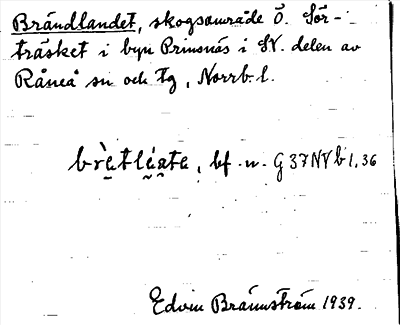 Brändlandet, skogsområde Ö. Sör-
träsket i byn Prinsnäs i SV. delen av
Råneå sn och tg, Norrb. l.
brètléata, bf. n. G 37 NV b 1, 36
Edvin Brännström 1939.